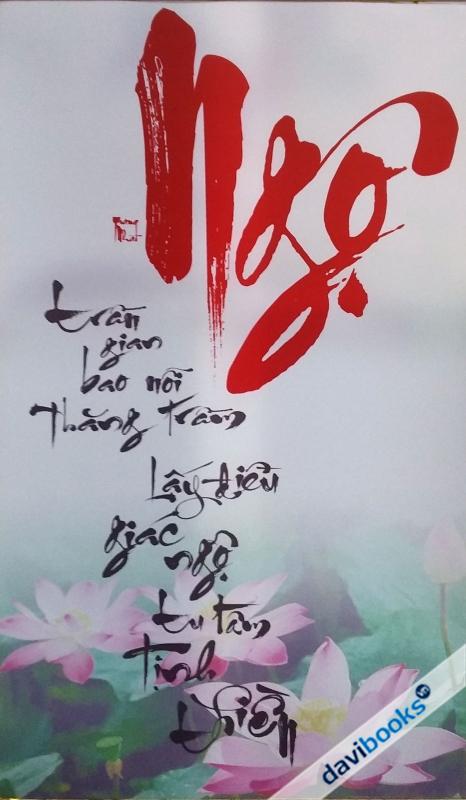 Ngộ
trần
gian
bao nỗi
thăng trầm
Lấy điều
giác
ngộ
tu tâm
Tịnh
thiền
davibooks.vn